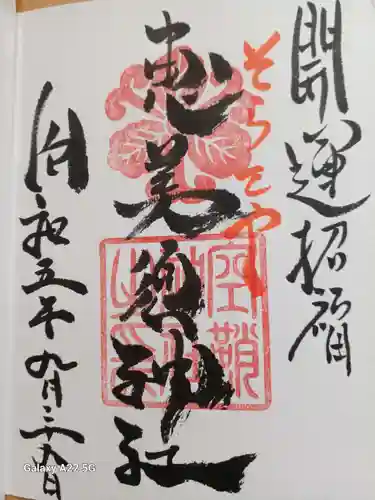 開運招福
そらさや
恵美須神社
令和五年九月三十日
空鞘
Galaxy A22 5G